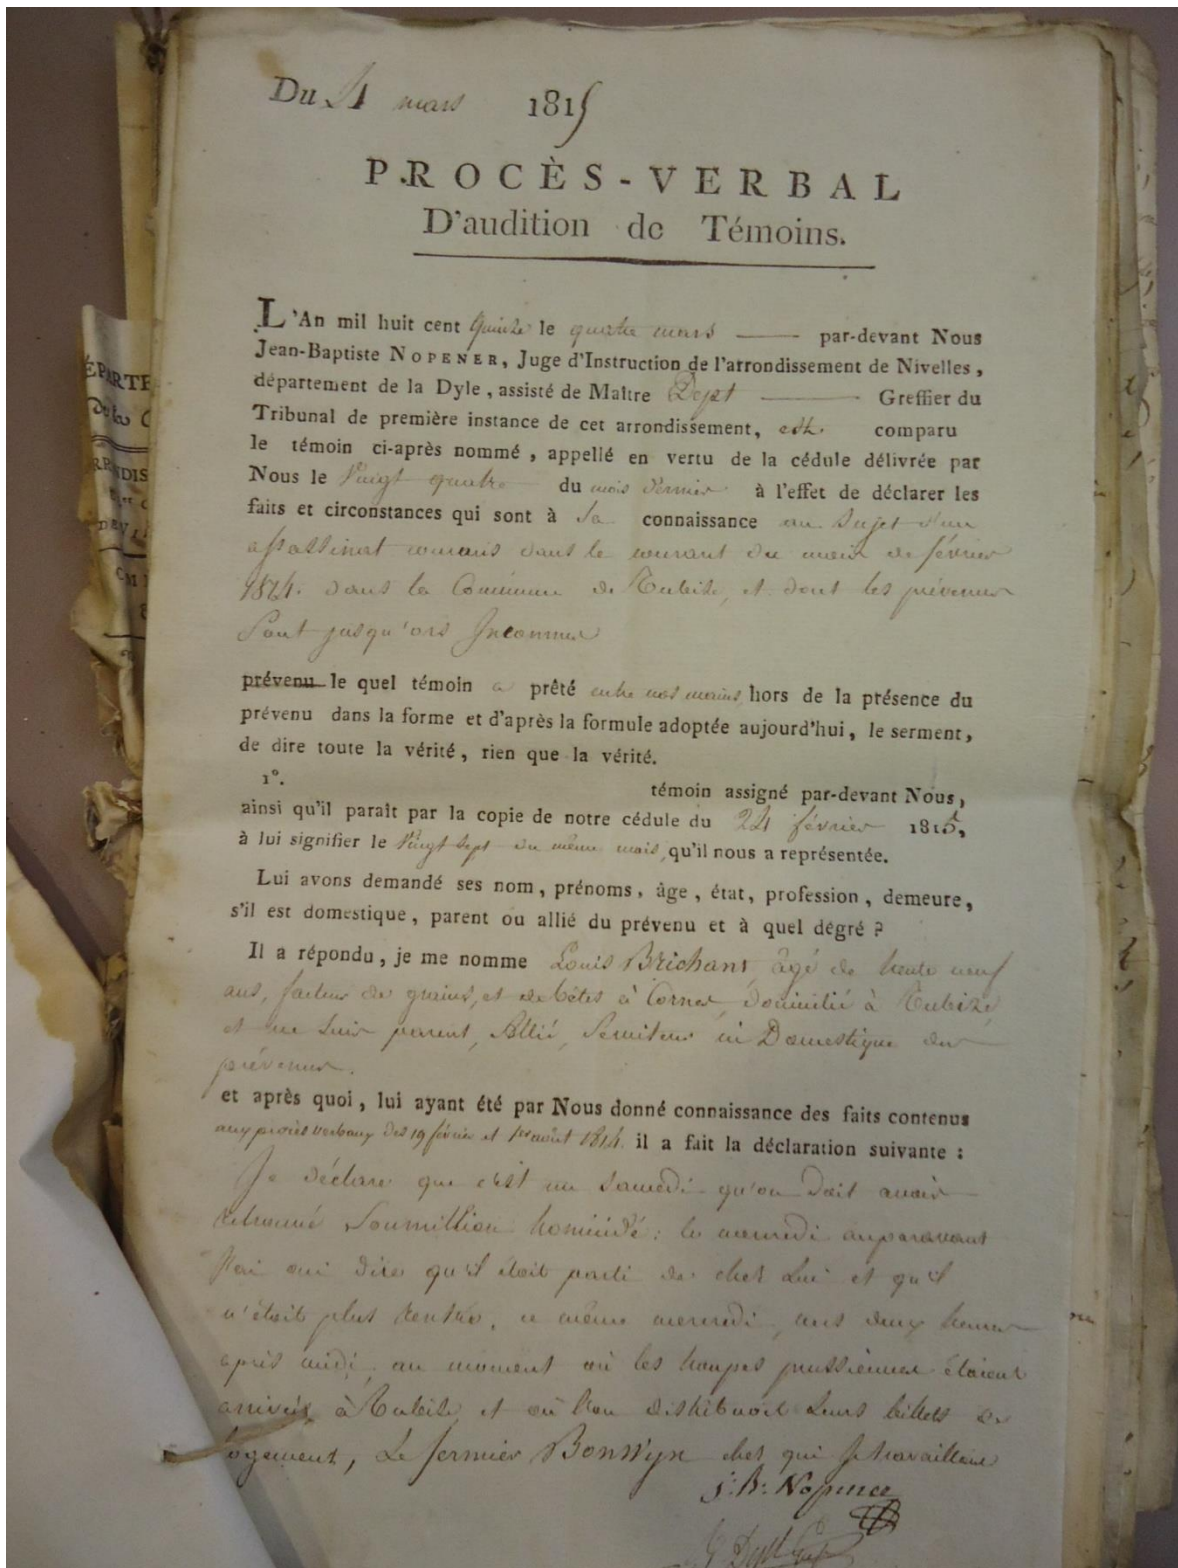 Du 4 mars 1815
PROCÈS-VERBAL
D'audition de Témoins.
L'An mil huit cent quinze le quatre mars par-devant Nous
Jean-Baptiste NOPENER, Juge d'Instruction de l'arrondissement de Nivelles,
département de la Dyle, assisté de Maître Dept Greffier du
Tribunal de première instance de cet arrondissement, est comparu
le témoin ci-après nommé, appellé en vertu de la cédule délivrée par
Nous le vingt quatre du mois dernier à l'effet de déclarer les
faits et circonstances qui sont à sa connaissance au sujet d'un
assassinat commis dans le courant du mois de février
1814. dans la Commune de Tubize, et dont les prévenus
sont jusqu'ors Inconnus
prévenu le quel témoin a prêté entre nos mains, hors de la présence du
prévenu dans la forme et d'après la formule adoptée aujourd'hui, le serment,
de dire toute la vérité, rien que la vérité.
1°. témoin assigné par-devant Nous,
ainsi qu'il paraît par la copie de notre cédule du 24 février 1815,
à lui signifier le vingt sept du même mois, qu'il nous a représentée.
Lui avons demandé ses nom, prénoms, âge, état, profession, demeure,
s'il est domestique, parent ou allié du prévenu et à quel dégré ?
Il a répondu, je me nomme Louis Brichant âgé de trente neuf
ans, facteur de grains, et de bêtes à Cornes, domicilié à Tubize,
et ne suis parent, Allié, Serviteur ni Domestique des
prévenus.
et après quoi, lui ayant été par Nous donné connaissance des faits contenus
aux procès verbaux des 19 février et 1er août 1814. il a fait la déclaration suivante :
Je déclare que c'est un samedi qu'on doit avoir
retrouvé Soumillion homicidé : le mercredi auparavant
j'ai oui dire qu'il étoit parti de chez lui et qu'il
n'étoit plus rentré, ce même mercredi, vers deux heures
après midi, au moment où les troupes prussiennes étoient
arrivées à Tubize et où l'on distribuoit leurs billets de
logement, Le fermier Bonwyn chez qui je travaillais
J. B. Nopener